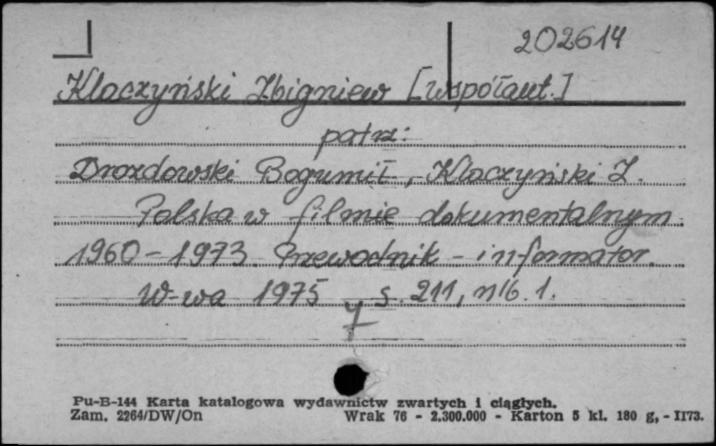 202614
Klaczyński Zbigniew [współaut.]
patrz:
Drozdowski Bogumił, Klaczyński Z.
Polska w filmie dokumentalnym
1960-1973. Przewodnik - informator.
W-wa 1975 s. 211, nlb. 1.
Pu-B-144 Karta katalogowa wydawnictw zwartych i ciągłych.
Zam. 2264/DW/On Wrak 76 - 2.300.000 - Karton 5 kl. 180 g, - II73.